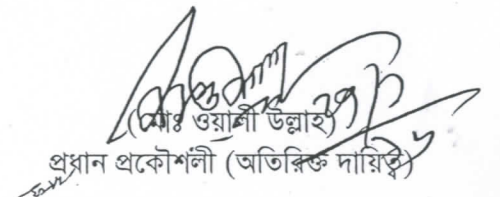 (মোঃ ওয়ালী উল্লাহ)
প্রধান প্রকৌশলী (অতিরিক্ত দায়িত্ব)